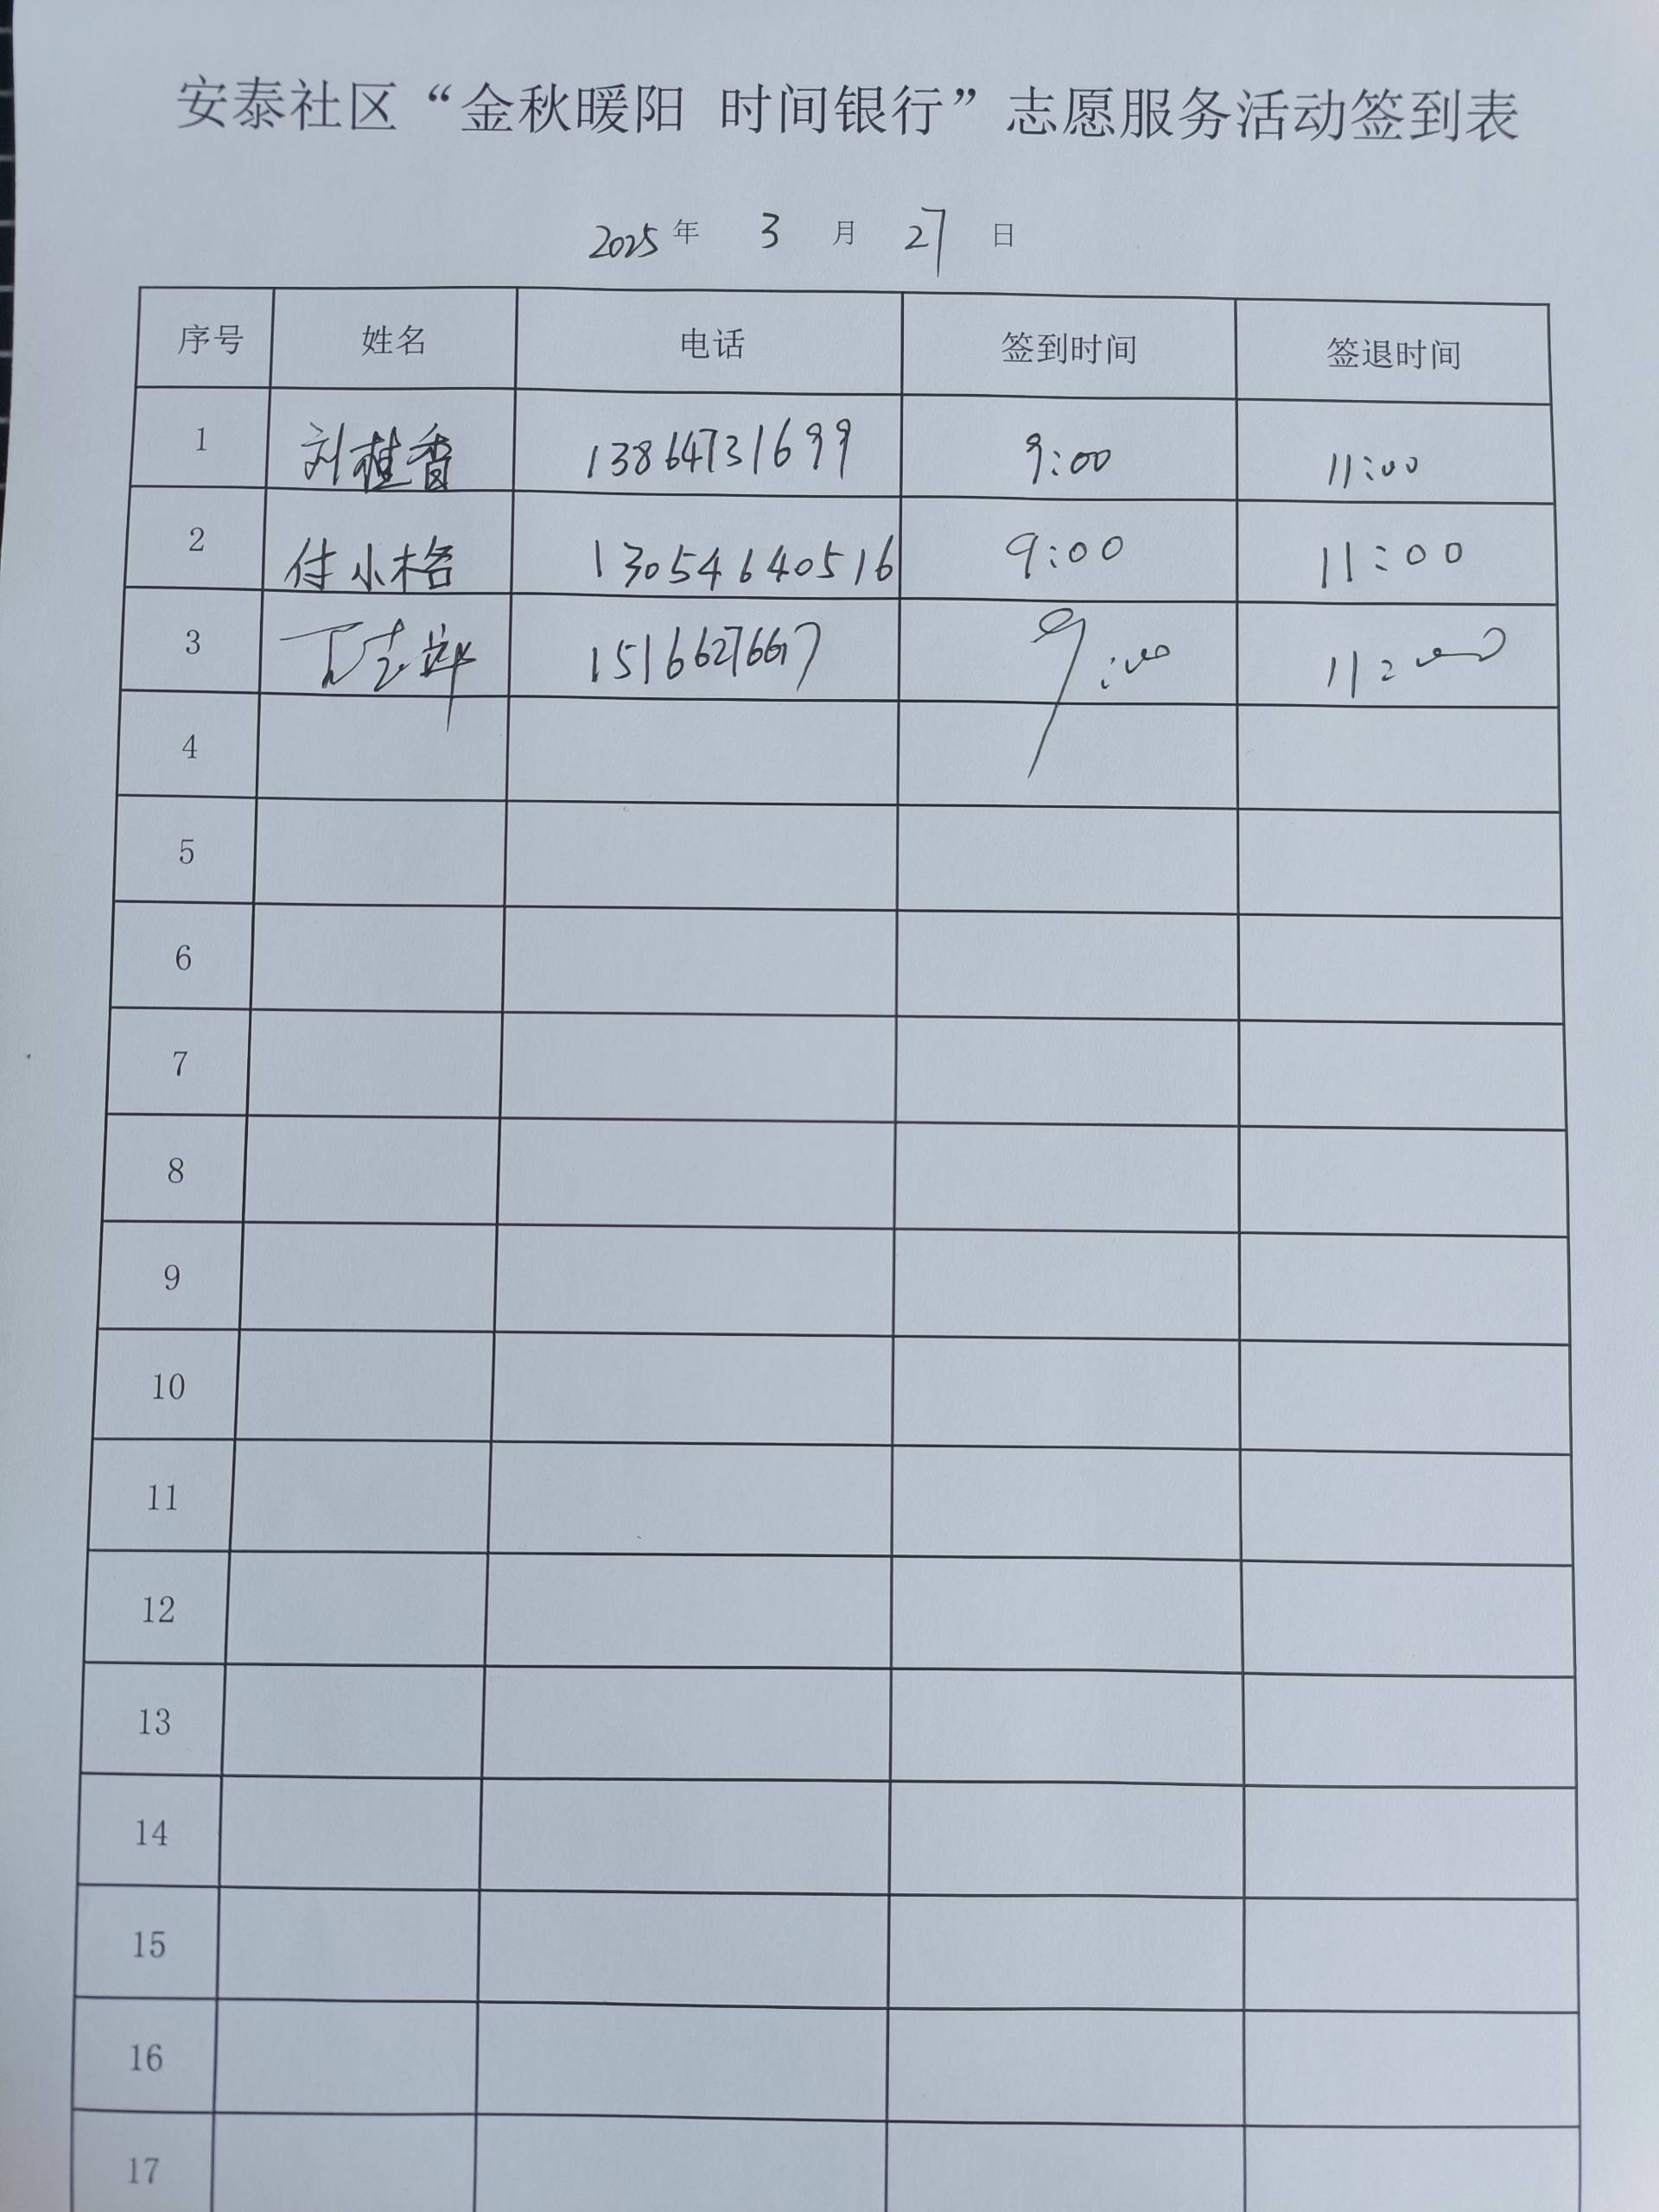 安泰社区“金秋暖阳 时间银行”志愿服务活动签到表
2025 年 3 月 27 日
序号 姓名 电话 签到时间 签退时间
1 刘桂香 13864731699 9:00 11:00
2 付小格 13054640516 9:00 11:00
3 15166276667 9:00 11:00
4
5
6
7
8
9
10
11
12
13
14
15
16
17